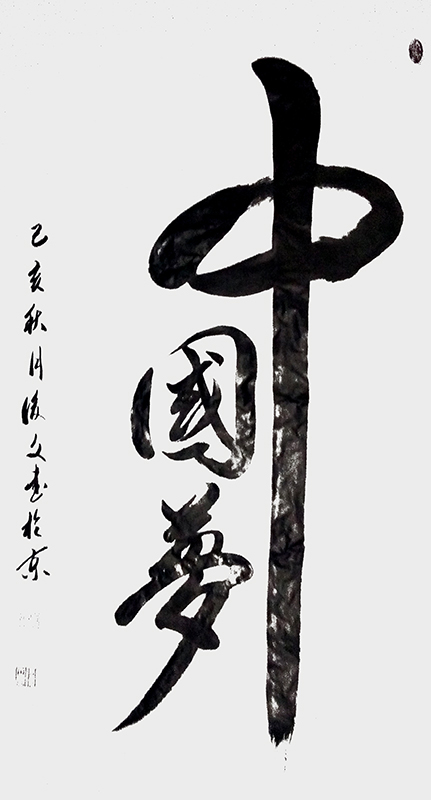 中國夢
己亥秋月俊文書於京